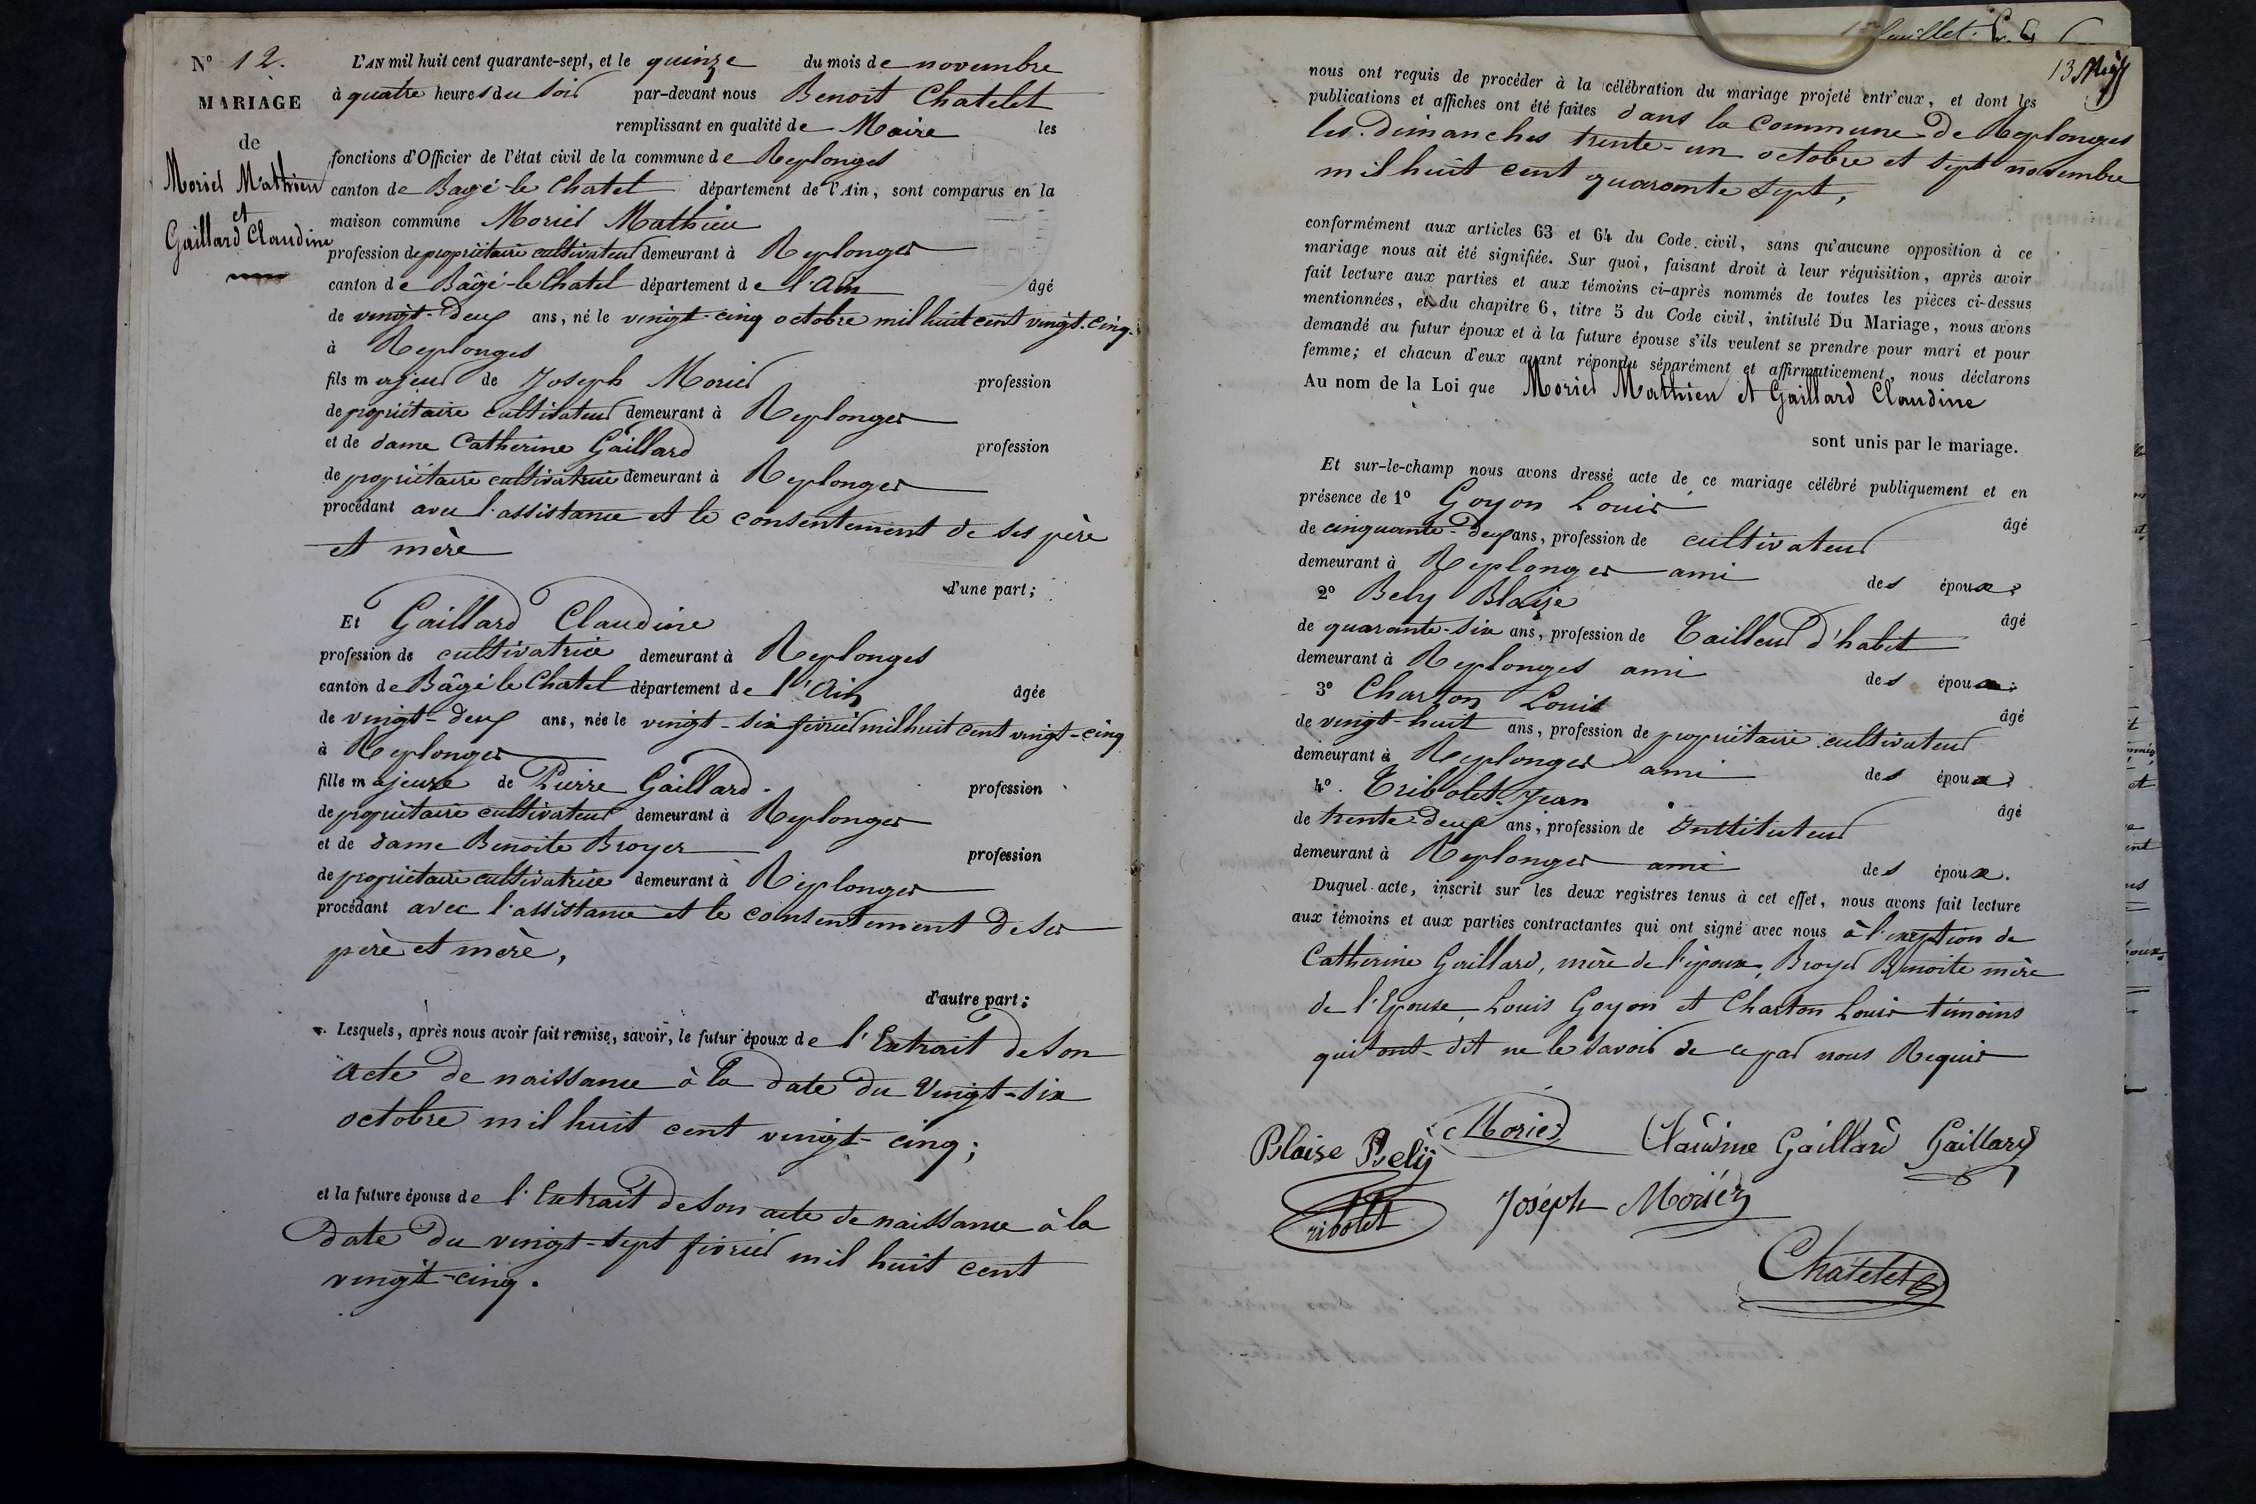 N° 12.
MARIAGE
de
Moriér Mathieu
et
Gaillard Claudine
L'AN mil huit cent quarante-sept, et le quinze du mois de novembre
à quatre heures du soir par-devant nous Benoit Chatelet
remplissant en qualité de Maire les
fonctions d'Officier de l'état civil de la commune de Replonges
canton de Bagé-le Chatel département de l'Ain, sont comparus en la
maison commune Moriér Mathieu
profession de propriétaire cultivateur demeurant à Replonges
canton de Bâgé-le Chatel département de l'Ain âgé
de vingt-deux ans, né le vingt-cinq octobre mil huit cent vingt-cinq.
à Replonges
fils majeur de Joseph Moriér profession
de propriétaire cultivateur demeurant à Replonges
et de dame Catherine Gaillard profession
de propriétaire cultivatrice demeurant à Replonges
procédant avec l'assistance et le consentement de ses père
et mère
d'une part;
Et Gaillard Claudine
profession de cultivatrice demeurant à Replonges
canton de Bâgé le Chatel département de l'Ain âgée
de vingt-deux ans, née le vingt-six février mil huit cent vingt-cinq
à Replonges
fille majeure de Pierre Gaillard. profession
de propriétaire cultivateur demeurant à Replonges
et de dame Benoite Broyer profession
de propriétaire cultivatrice demeurant à Replonges
procédant avec l'assistance et le consentement de ses
père et mère,
d'autre part;
Lesquels, après nous avoir fait remise, savoir, le futur époux de l'Extrait de son
acte de naissance à la date du vingt-six
octobre mil huit cent vingt-cinq;
et la future épouse de l'Extrait de son acte de naissance à la
date du vingt-sept février mil huit cent
vingt-cinq.
1er feuillet.
13
nous ont requis de procéder à la célébration du mariage projeté entr'eux, et dont les
publications et affiches ont été faites dans la commune de Replonges
les dimanches trente-un octobre et sept novembre
mil huit cent quarante sept,
conformément aux articles 63 et 64 du Code civil, sans qu'aucune opposition à ce
mariage nous ait été signifiée. Sur quoi, faisant droit à leur réquisition, après avoir
fait lecture aux parties et aux témoins ci-après nommés de toutes les pièces ci-dessus
mentionnées, et du chapitre 6, titre 5 du Code civil, intitulé Du Mariage, nous avons
demandé au futur époux et à la future épouse s'ils veulent se prendre pour mari et pour
femme; et chacun d'eux ayant répondu séparément et affirmativement, nous déclarons
Au nom de la Loi que Moriér Mathieu et Gaillard Claudine
sont unis par le mariage.
Et sur-le-champ nous avons dressé acte de ce mariage célébré publiquement et en
présence de 1° Goyon Louis âgé
de cinquante-deux ans, profession de cultivateur
demeurant à Replonges ami des époux;
2° Bely Blaize âgé
de quarante-six ans, profession de Tailleur d'habit
demeurant à Replonges ami des époux;
3° Charton Louis âgé
de vingt-huit ans, profession de propriétaire cultivateur
demeurant à Replonges ami des époux;
4°. Tribolet Jean âgé
de trente-deux ans, profession de Instituteur
demeurant à Replonges ami des époux.
Duquel acte, inscrit sur les deux registres tenus à cet effet, nous avons fait lecture
aux témoins et aux parties contractantes qui ont signé avec nous à l'exeption de
Catherine Gaillard, mère de l'époux, Broyer Benoite mère
de l'Epouse, Louis Goyon et Charton Louis témoins
qui ont dit ne le savoir de ce par nous Requis
Blaise Bely Moriér Claudine Gaillard Gaillard
Tribolet Joseph Moriér
Chatelet